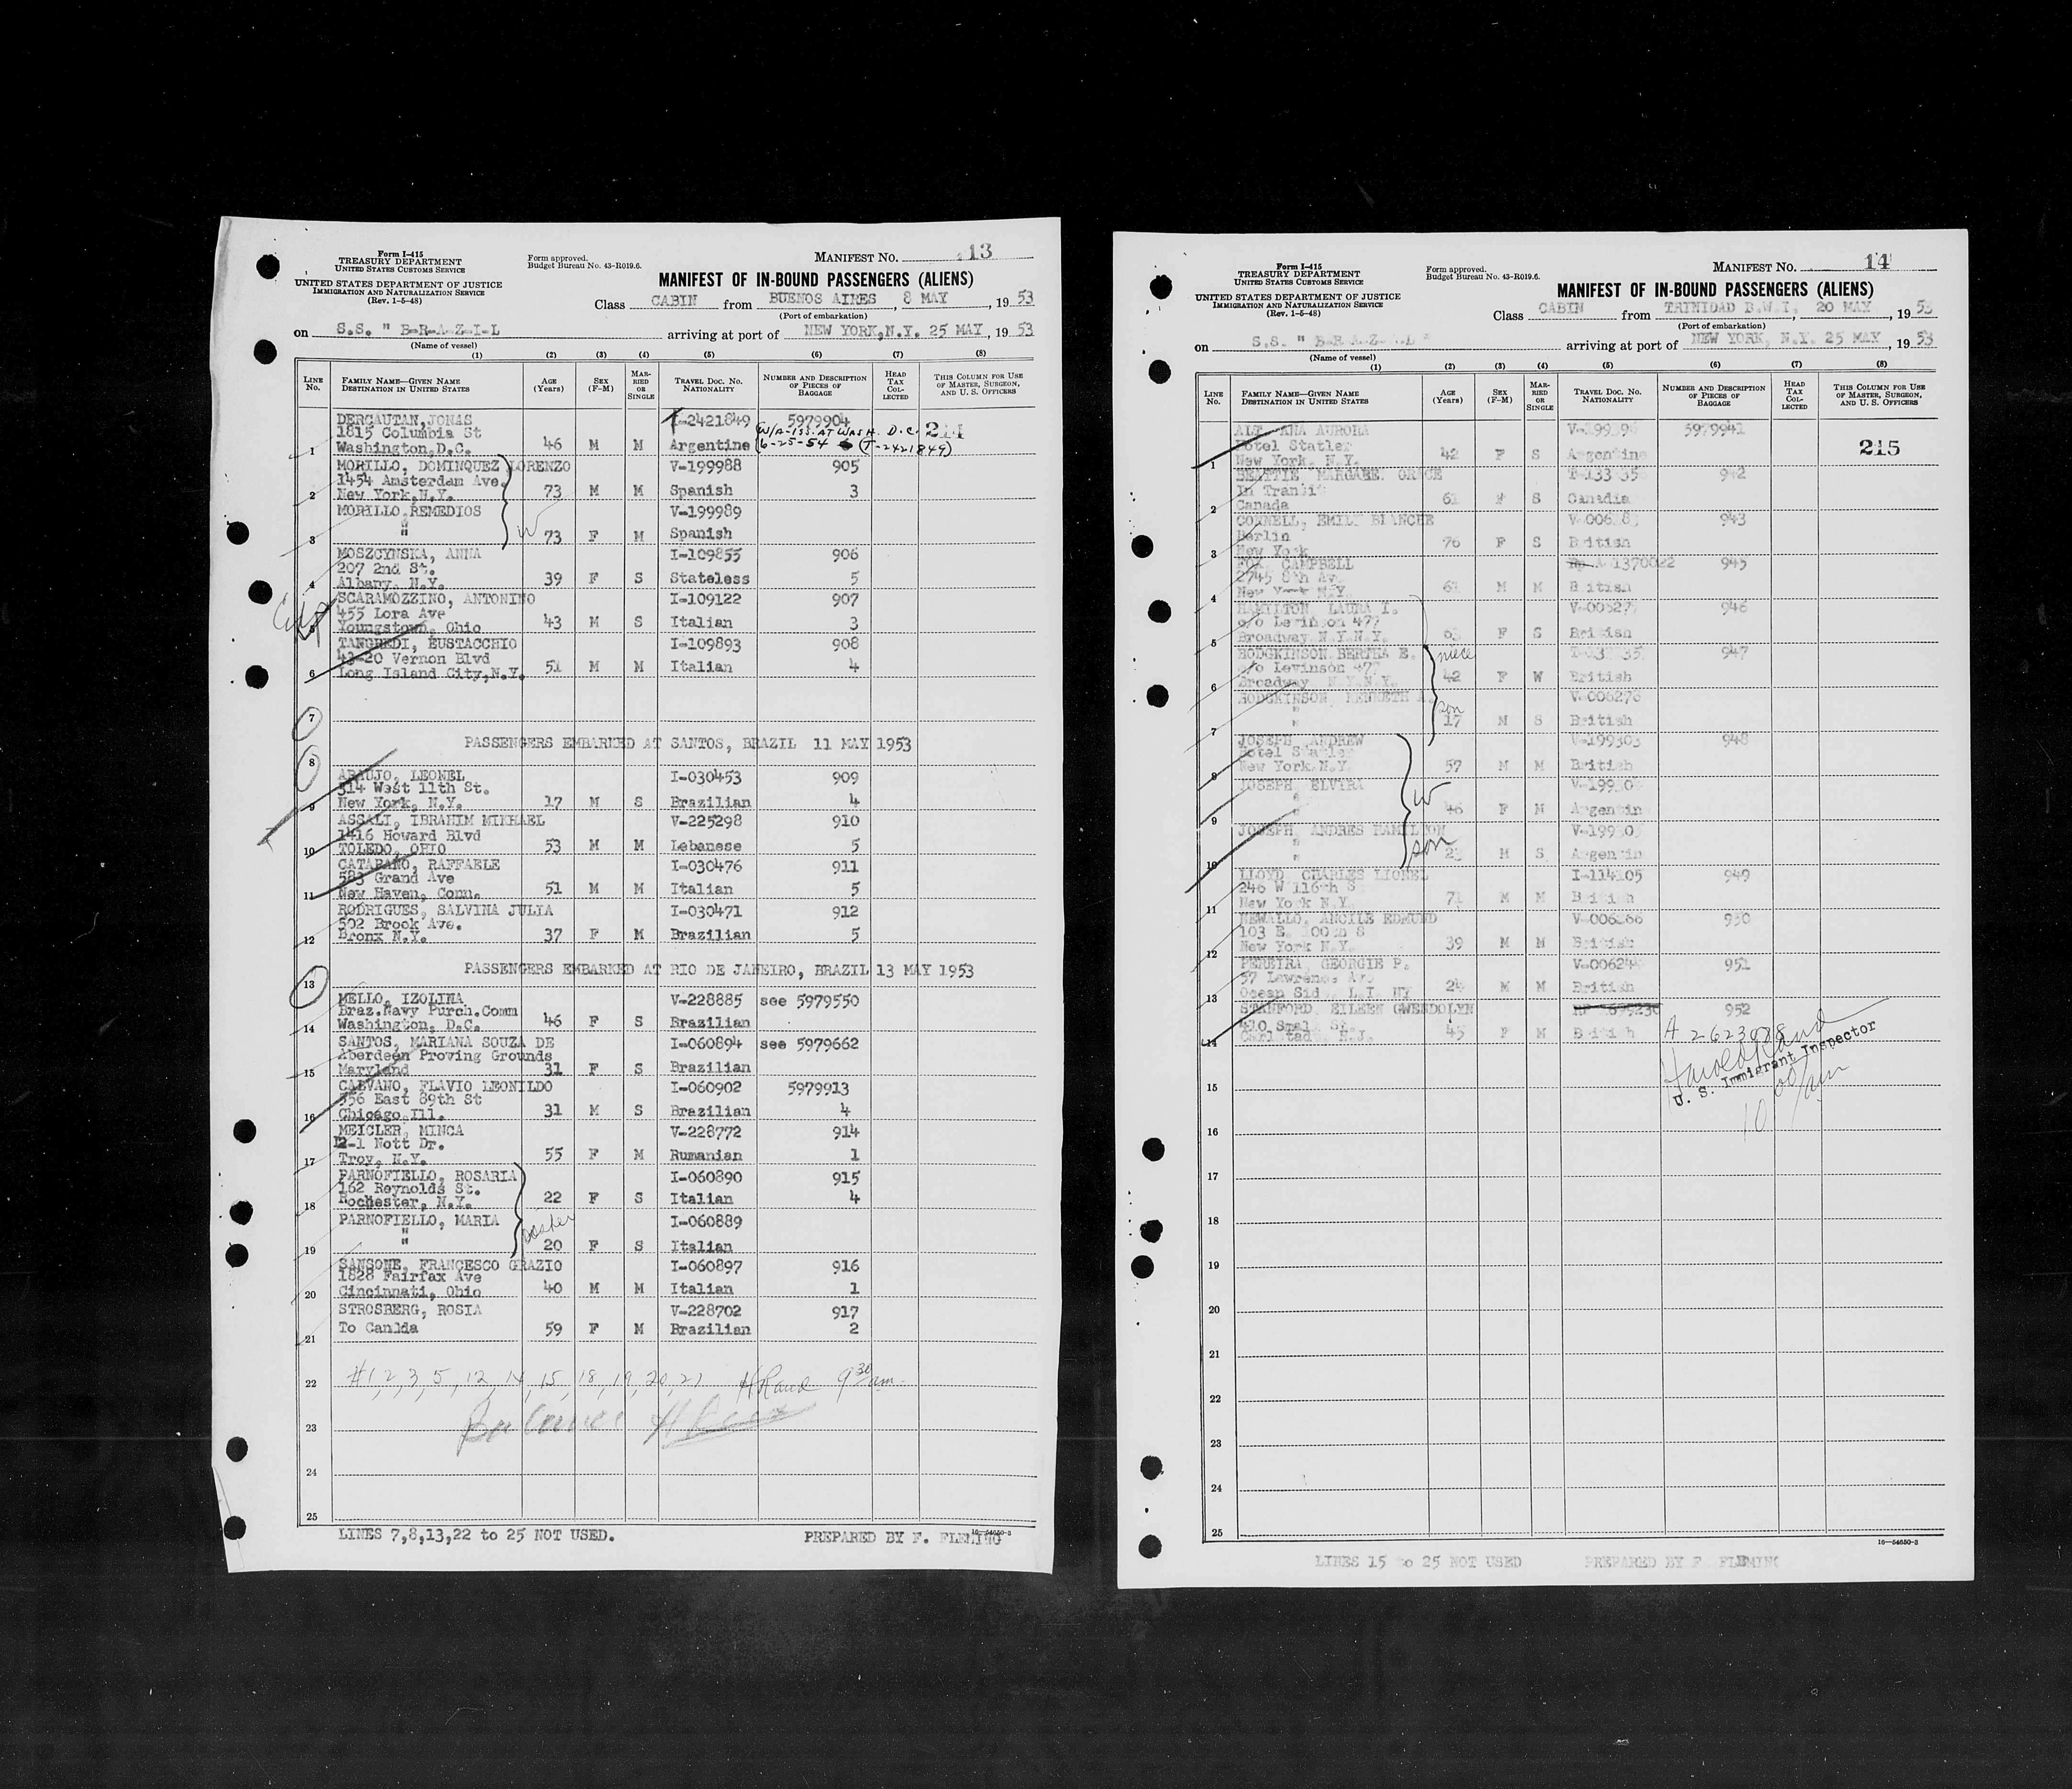 Form I-415
TREASURY DEPARTMENT
UNITED STATES CUSTOMS SERVICE
UNITED STATES DEPARTMENT OF JUSTICE
IMMIGRATION AND NATURALIZATION SERVICE
(Rev. 1-5-48)
Form approved.
Budget Bureau No. 43-R019.6.
MANIFEST NO. 13
MANIFEST OF IN-BOUND PASSENGERS (ALIENS)
Class CABIN from BUENOS AIRES , 8 MAY , 19 53
(Port of embarkation)
on S.S. " B-R-A-Z-I-L arriving at port of NEW YORK,N.Y. 25 MAY , 19 53
(Name of vessel)
(1) (2) (3) (4) (5) (6) (7) (8)
LINE No. FAMILY NAME—GIVEN NAME DESTINATION IN UNITED STATES AGE (Years) SEX (F-M) MARRIED OR SINGLE TRAVEL DOC. NO. NATIONALITY NUMBER AND DESCRIPTION OF PIECES OF BAGGAGE HEAD TAX COLLECTED THIS COLUMN FOR USE OF MASTER, SURGEON, AND U. S. OFFICERS
DERCAUTAN,JONAS T-2421849 5979904
1815 Columbia St W/A-ISS. AT WASH. D.C. 214
1 Washington,D.C. 46 M M Argentine 6-25-54 (T-2421849)
MORILLO, DOMINQUEZ LORENZO V-199988 905
1454 Amsterdam Ave.
2 New York,N.Y. 73 M M Spanish 3
MORILLO,REMEDIOS V-199989
3 " W 73 F M Spanish
MOSZCYNSKA, ANNA I-109855 906
207 2nd St.
4 Albany, N.Y. 39 F S Stateless 5
SCARAMOZZINO, ANTONINO I-109122 907
455 Lora Ave
5 Youngstown, Ohio 43 M S Italian 3
TANGREDI, EUSTACCHIO I-109893 908
43-20 Vernon Blvd
6 Long Island City,N.Y. 51 M M Italian 4
7
PASSENGERS EMBARKED AT SANTOS, BRAZIL 11 MAY 1953
8
ARAUJO, LEONEL I-030453 909
314 West 11th St.
9 New York, N.Y. 17 M S Brazilian 4
ASSALI, IBRAHIM MIKHAEL V-225298 910
1416 Howard Blvd
10 TOLEDO, OHIO 53 M M Lebanese 5
CATAPANO, RAFFAELE I-030476 911
583 Grand Ave
11 New Haven, Conn. 51 M M Italian 5
RODRIGUES, SALVINA JULIA I-030471 912
502 Brook Ave.
12 Bronx N.Y. 37 F M Brazilian 5
PASSENGERS EMBARKED AT RIO DE JANEIRO, BRAZIL 13 MAY 1953
13
MELLO, IZOLINA V-228885 see 5979550
Braz.Navy Purch.Comm
14 Washington, D.C. 46 F S Brazilian
SANTOS, MARIANA SOUZA DE I-060894 see 5979662
Aberdeen Proving Grounds
15 Maryland 31 F S Brazilian
CALVANO, FLAVIO LEONILDO I-060902 5979913
556 East 89th St
16 Chicago Ill. 31 M S Brazilian 4
MEICLER, MINCA V-228772 914
12-1 Nott Dr.
17 Troy, N.Y. 55 F M Rumanian 1
PARNOFIELLO, ROSARIA I-060890 915
162 Reynolds St.
18 Rochester, N.Y. 22 F S Italian 4
PARNOFIELLO, MARIA I-060889
"
19 " 20 F S Italian
SANSONE, FRANCESCO GRAZIO I-060897 916
1828 Fairfax Ave
20 Cincinnati, Ohio 40 M M Italian 1
STROSBERG, ROSIA V-228702 917
21 To Canlda 59 F M Brazilian 2
22 #1, 2, 3, 5, 12, 14, 15, 18, 19, 20, 21 9 30 am
23
24
25
16—54650-3
LINES 7,8,13,22 to 25 NOT USED. PREPARED BY F. FLEMING
Form I-415
TREASURY DEPARTMENT
UNITED STATES CUSTOMS SERVICE
UNITED STATES DEPARTMENT OF JUSTICE
IMMIGRATION AND NATURALIZATION SERVICE
(Rev. 1-5-48)
Form approved.
Budget Bureau No. 43-R019.6.
MANIFEST NO. 14
MANIFEST OF IN-BOUND PASSENGERS (ALIENS)
Class CABIN from TRINIDAD B.W.I. 20 MAY , 19 53
(Port of embarkation)
on S.S. " B-R-A-Z- -L " arriving at port of NEW YORK, N.Y. 25 MAY , 19 53
(Name of vessel)
(1) (2) (3) (4) (5) (6) (7) (8)
LINE No. FAMILY NAME—GIVEN NAME DESTINATION IN UNITED STATES AGE (Years) SEX (F-M) MARRIED OR SINGLE TRAVEL DOC. NO. NATIONALITY NUMBER AND DESCRIPTION OF PIECES OF BAGGAGE HEAD TAX COLLECTED THIS COLUMN FOR USE OF MASTER, SURGEON, AND U. S. OFFICERS
AURORA 5979941
Hotel Statler 215
1 New York, N.Y. 42 F S Argentine
942
In Transi
2 Canada 61 S Canadia
CONNELL, EMIL BLANCHE 943
Berlin
3 New York 76 F S British
FOX, CAMPBELL 1370022 945
2745 8th Av
4 New York N.Y. 61 M M British
HAMILTON LAURA I. 946
c/o Levinson 477
5 Broadway N.Y.N.Y. 63 F S British
HODGKINSON BERTHA E. niece 947
c/o Levinson 477
6 Broadway N.Y.N.Y. 42 F W British
HODGKINSON, KENNETH A. V-006276
" son
7 17 M S British
JOSEPH ANDREW V-199303 948
Hotel Statler
8 New York N.Y. 57 M M British
JOSEPH ELVIRA
" W
9 46 F M Argentin
JOSEPH, ANDRES HAMILTON
"
10 " son 23 M S Argentin
LLOYD, CHARLES LIONEL I-114105 949
246 W 116th S
11 New York N.Y. 71 M M British
NEWALLO, ANCILE EDMUND 950
103 E. 100th S
12 New York N.Y. 39 M M British
PEREIRA, GEORGIE P. 951
57 Lawrence Av
13 Ocean Sid L.I. NY 24 M M British
STANFORD, EILEEN GWENDOLYN 952
410 St.
14 Carlstad N.J. 45 F M British A 2623088
U. S. Immigrant Inspector
15
16
17
18
19
20
21
22
23
24
25
16—54650-3
LINES 15 to 25 NOT USED PREPARED BY F. FLEMING